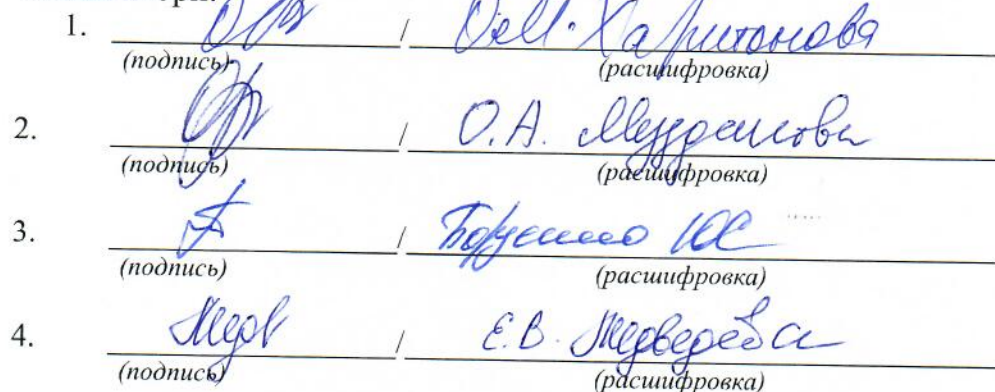 1. / О.М. Харитонова
(подпись) (расшифровка)
2. / О.А.
(подпись) (расшифровка)
3. / ЮС
(подпись) (расшифровка)
4. Медв / Е.В. Медведева
(подпись) (расшифровка)